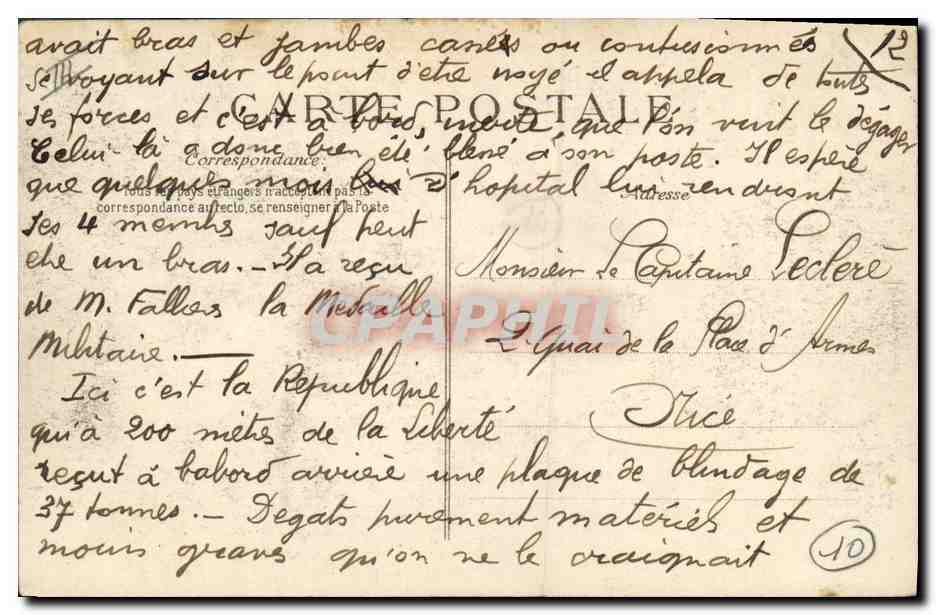 avait bras et jambes cassés ou contusionnés
se voyant sur le point d'etre noyé il appela de toutes
ses forces et c'est à bord, que l'on vint le dégager
CARTE POSTALE
Celui-là a donc bien été blessé à son poste. Il espère
Correspondance:
que quelques mois d'hopital lui rendront
Tous les pays étrangers n'acceptent pas la
correspondance au recto, se renseigner à la Poste
Adresse
ses 4 membres sauf peut
etre un bras. - Il a reçu
de M. Fallières la Médaille
Militaire. —
Ici c'est la République
qu'à 200 mètres de la Liberté
reçut à babord arrière une plaque de blindage de
37 tonnes. - Degats purement matériels et
moins graves qu'on ne le craignait
Monsieur Le Capitaine Leclere
2 Quai de la Place d'Armes
Nice
12
10
III
CPAPHIL